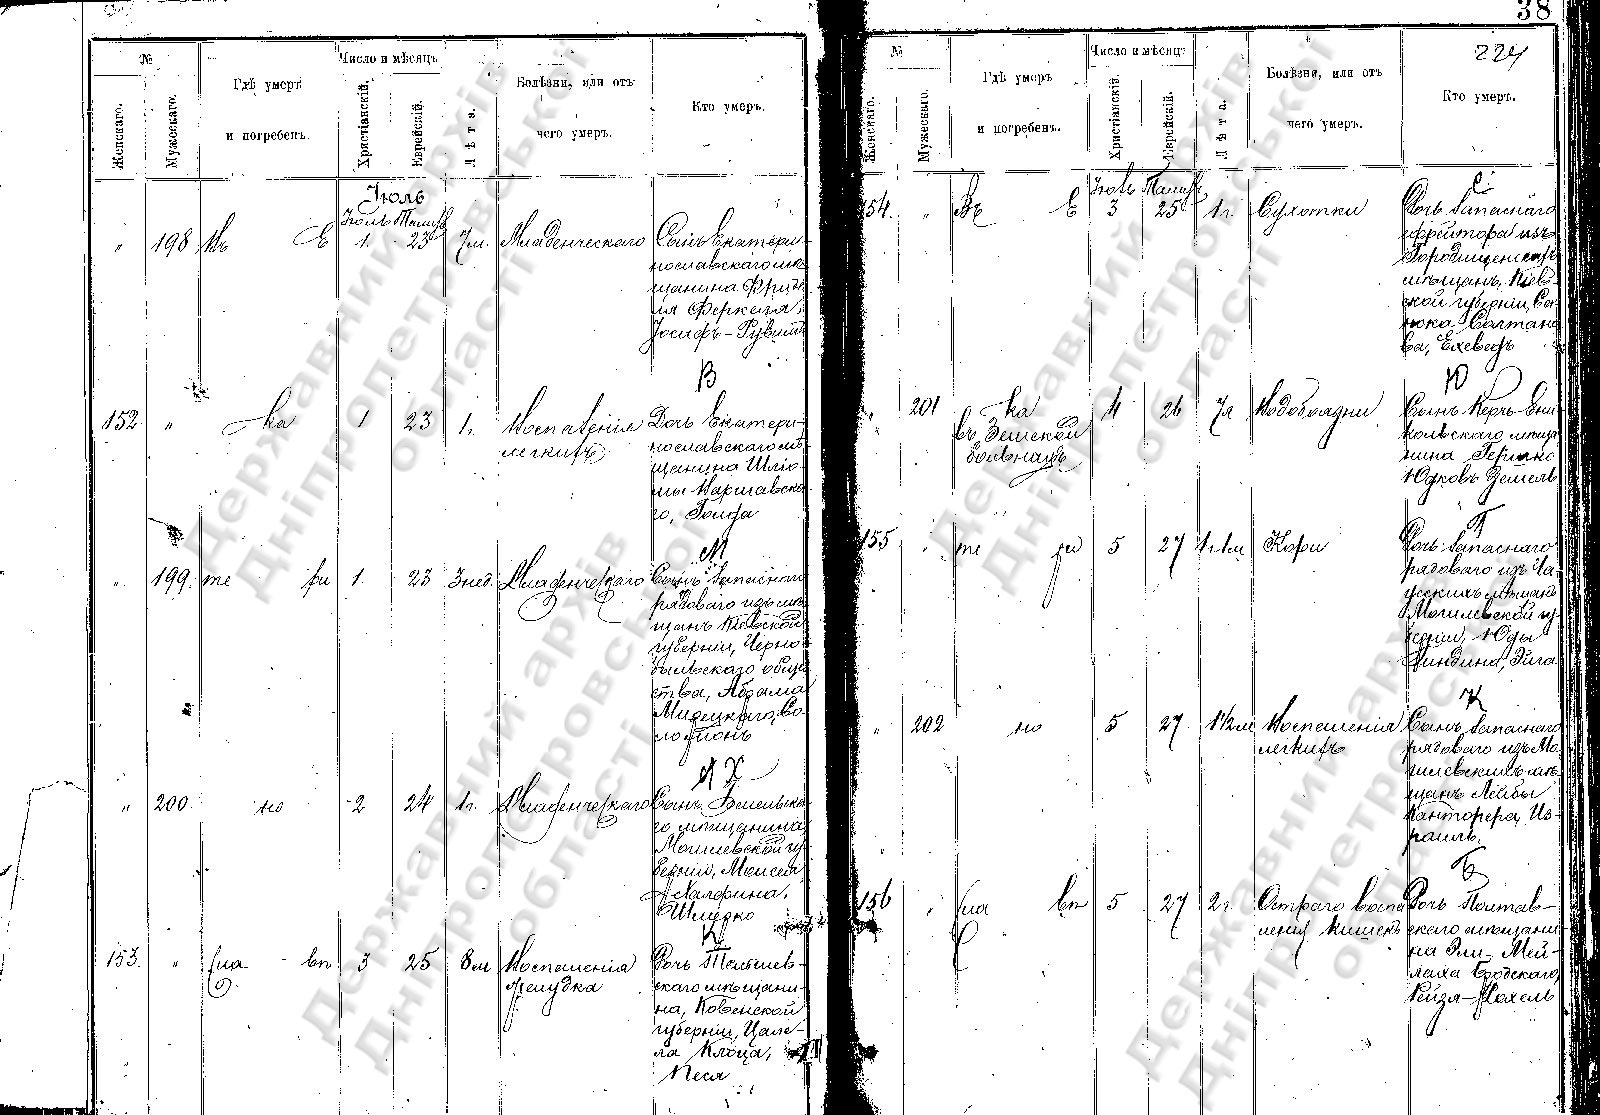 38
№
Женскаго.
Мужескаго.
Гдѣ умеръ
и погребенъ.
Число и мѣсяцъ
Христіанскій.
Еврейскій.
Лѣта.
Болѣзни, или отъ
чего умеръ.
Кто умеръ.
Іюль
Іюль Тамузъ
" 198 Въ Е 1. 23 7м. Младенческаго
Сынъ Екатери-
нославскаго мѣ-
щанина Фриде-
ля
Іосифъ-Рувинъ
В
152 " ка 1 23 1г. Воспаленія
легкихъ
Дочь Екатери-
нославскаго мѣ-
щанина Шлio-
мы Варшавска-
го, Голда
М
" 199. те ри 1. 23 3 нед. Младенческаго
Сынъ запаснаго
рядоваго изъ мѣ-
щанъ Кіевской
губерніи, Черно-
быльскаго обще-
ства, Абрама
Со-
ломонъ
Х
" 200. но 2 24 1г. Младенческаго
Сынъ Гомельска-
го мѣщанина,
Могилевской гу-
берніи, Моисея
Халфина,
Шмерко
К
153. " сла вп 3 25 8м Воспаленія
желудка
Дочь Тельшев-
скаго мѣщани-
на, Ковенской
губерніи, Цале-
ла Клоца,
Песя
№
Женскаго.
Мужескаго.
Гдѣ умеръ
и погребенъ.
Число и мѣсяцъ
Христіанскій.
Еврейскій.
Лѣта.
Болѣзни, или отъ
чего умеръ.
224
Кто умеръ.
Іюль Тамузъ
С
154. " Въ Е 3 25 1г. Сухотки
Дочь запаснаго
ефрейтора изъ
Городищенскихъ
мѣщанъ, Кіев-
ской губерніи, Се-
Салтано-
ва, Ехеведъ
Ю
" 201 ка 4 26 7л Водобоязни
въ Земской
больницѣ
Сынъ Керчь-Ени-
кольскаго мѣща-
нина Гершко
Юдковъ Земель
155 " те ри 5 27 1г. 1м Кори
Дочь запаснаго
рядоваго изъ
мѣщанъ
Могилевской гу-
берніи, Юды
Эйга
К
" 202 но 5 27 1½м Воспаленія
легкихъ
Сынъ запаснаго
рядоваго изъ Мо-
гилевскихъ мѣ-
щанъ Лейбы
Кантофера, Из-
раиль.
Б
156 " сла вп 5 27 2г. Остраго воспа-
ленія кишекъ
Дочь Полтав-
скаго мѣщани-
на Эли-Мей-
лаха Бродскаго,
Рейзя-Рохель
Державний архів
Дніпропетровської
області